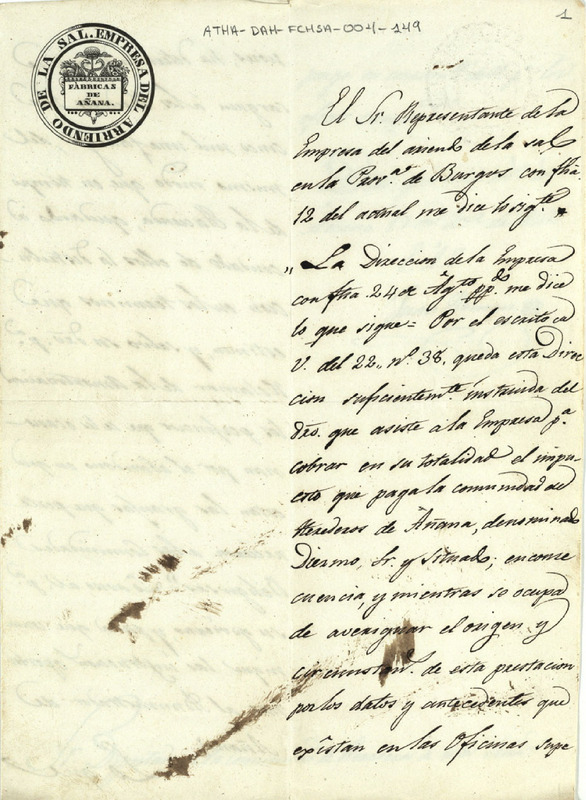 1
ATHA-DAH-FCHSA-004-149
EMPRESA DEL ARRIENDO DE LA SAL.
FÁBRICAS
DE
AÑANA.
El Sr. Representante de la
Empresa del arriendo de la sal
en la Prov.ª de Burgos con fha
12 del actual me dice lo sigte.
"La Direccion de la Empresa
con fha 24 de Agto. pp.do me dice
lo que sigue = Por el escrito de
V. del 22, nº. 38, queda esta Direc
cion suficientemte. instruida del
dro. que asiste a la Empresa p.ª
cobrar en su totalidad el impu-
esto que paga la comunidad de
Herederos de Añana, denominado
Diezmo, Sr. y Situado; en conse
cuencia, y mientras se ocupa
de averiguar el origen y
circunstans. de esta prestacion
por los datos y antecedentes que
existan en las Oficinas supe